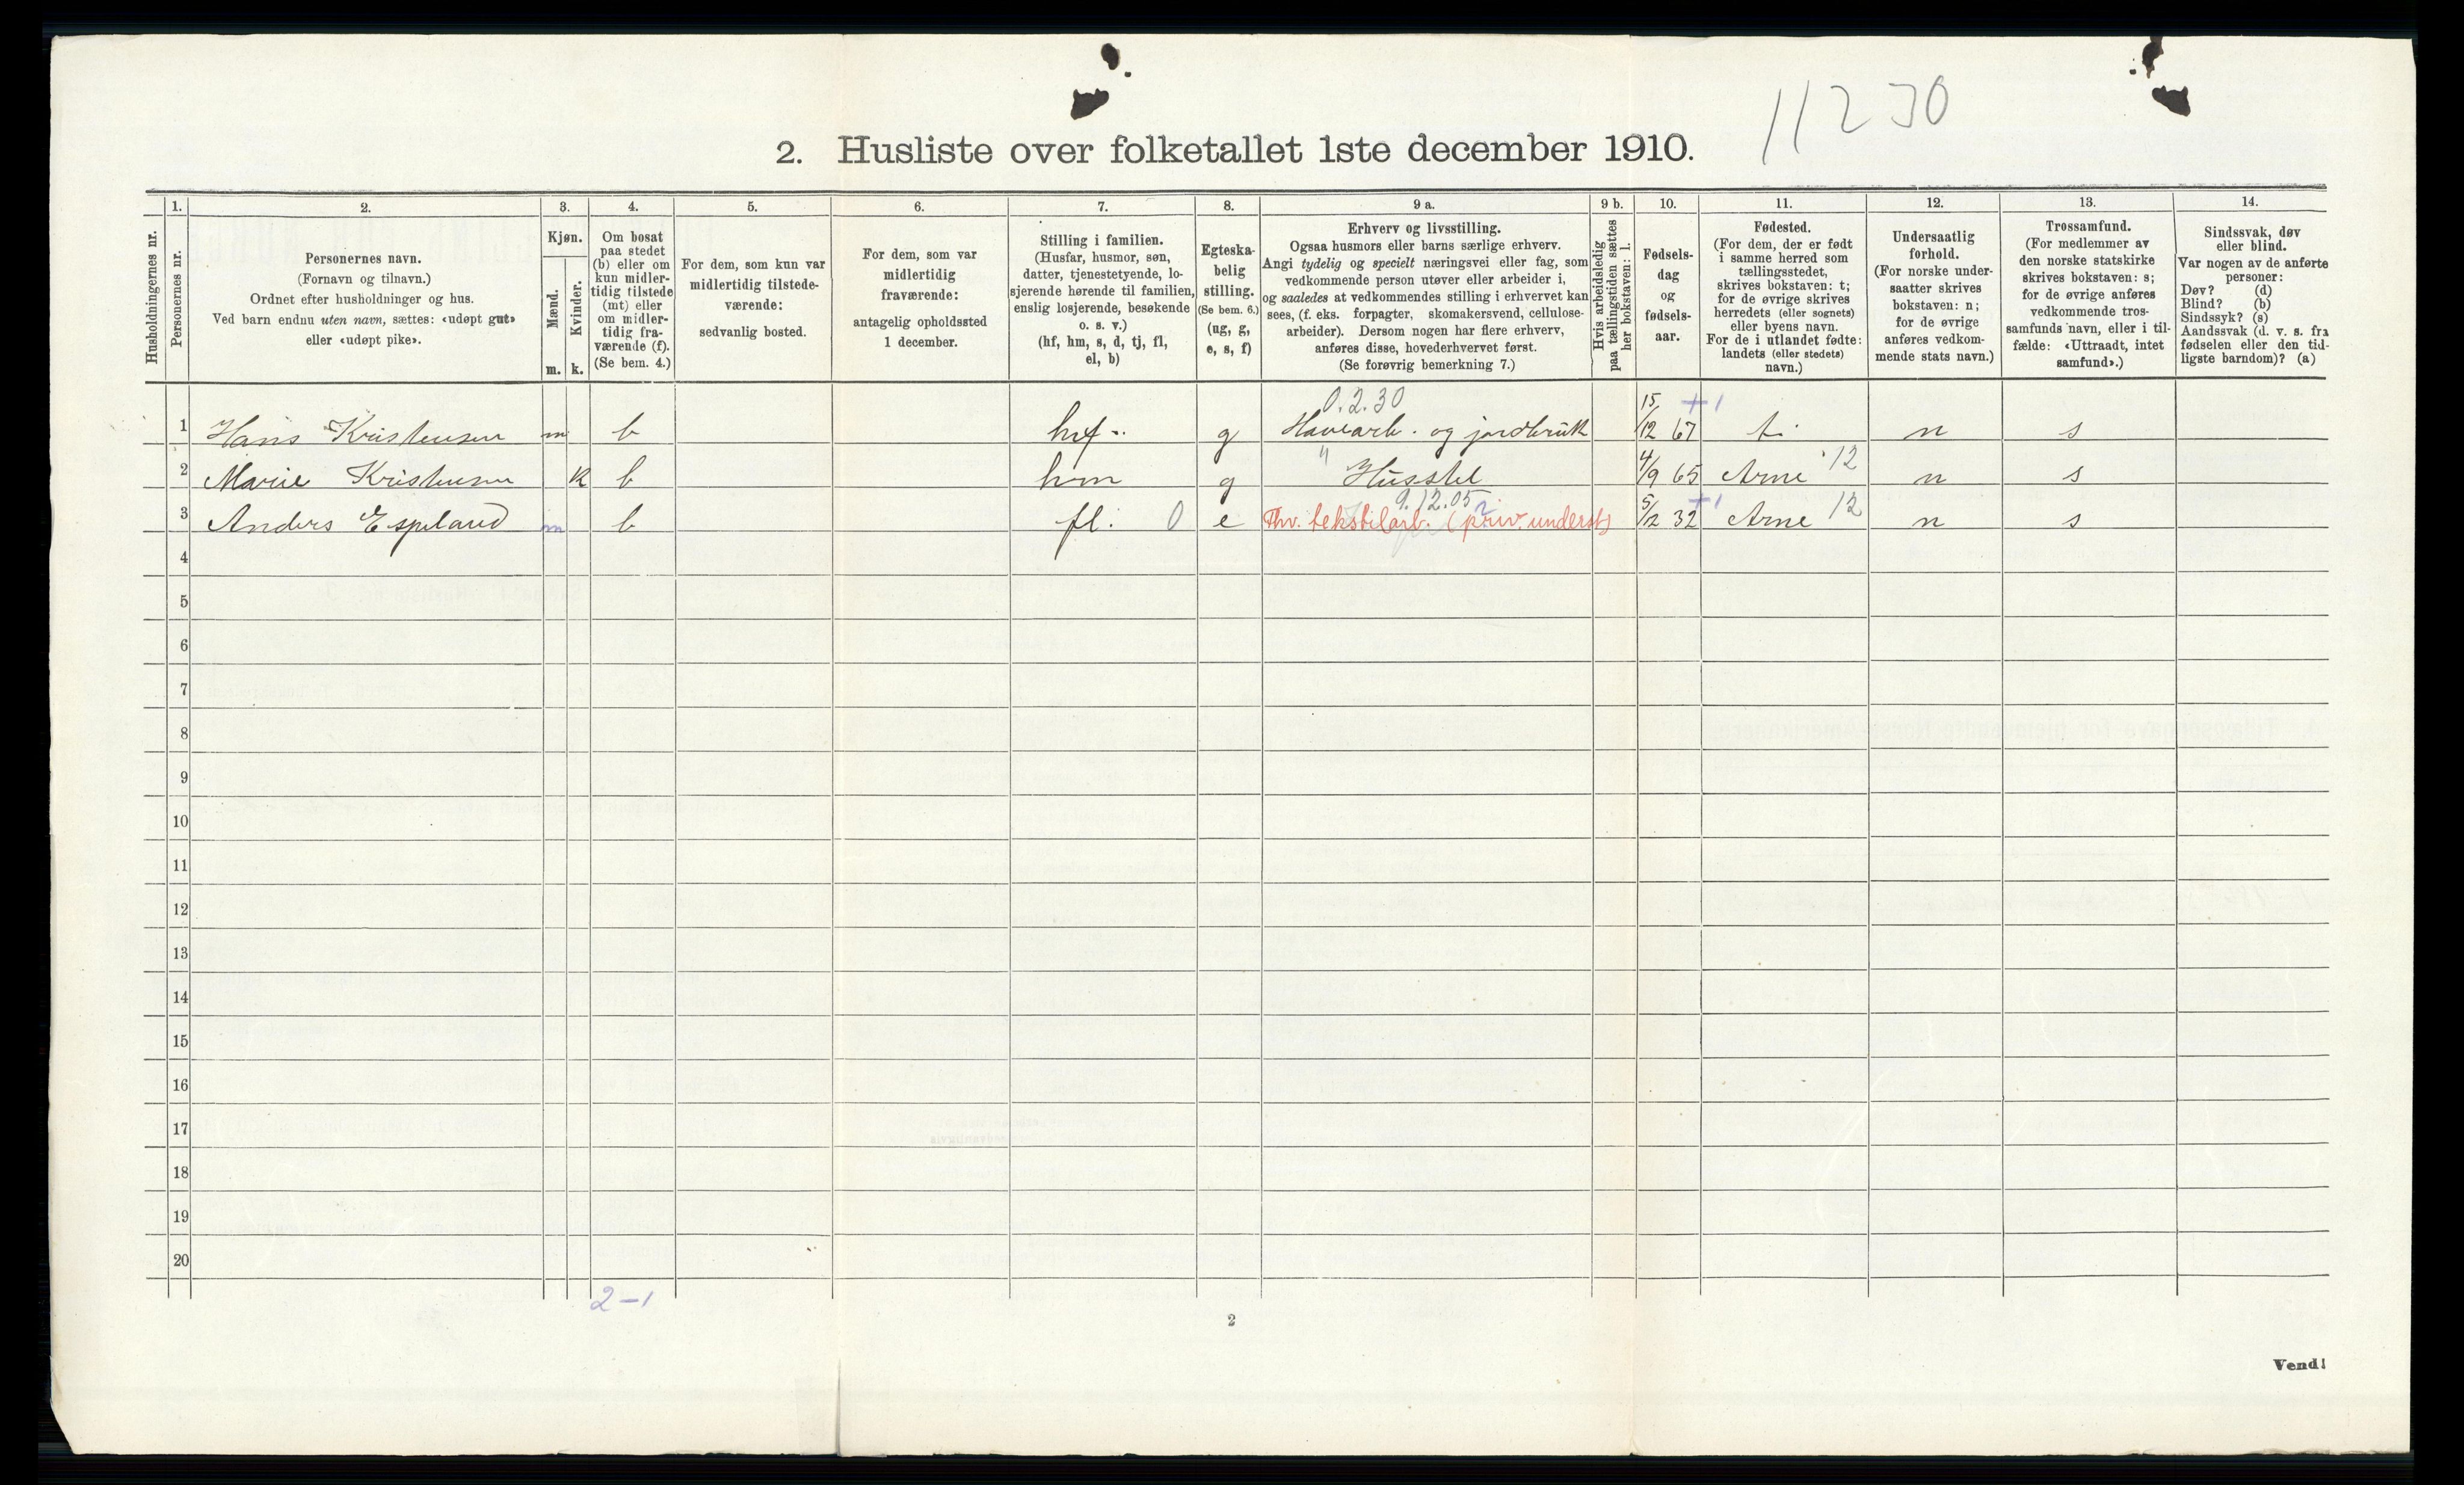 11230
2. Husliste over folketallet 1ste december 1910.
Husholdningernes nr.
1.
Personernes nr.
2.
Personernes navn.
(Fornavn og tilnavn.)
Ordnet efter husholdninger og hus.
Ved barn endnu uten navn, sættes: «udøpt gut»
eller «udøpt pike».
3.
Kjøn.
Mænd.
Kvinder.
m. k.
4.
Om bosat
paa stedet
(b) eller om
kun midler-
tidig tilstede
(mt) eller
om midler-
tidig fra-
værende (f).
(Se bem. 4.)
5.
For dem, som kun var
midlertidig tilstede-
værende:
sedvanlig bosted.
6.
For dem, som var
midlertidig
fraværende:
antagelig opholdssted
1 december.
7.
Stilling i familien.
(Husfar, husmor, søn,
datter, tjenestetyende, lo-
sjerende hørende til familien,
enslig losjerende, besøkende
o. s. v.)
(hf, hm, s, d, tj, fl,
el, b)
8.
Egteska-
belig
stilling.
(Se bem. 6.)
(ug, g,
e, s, f)
9 a.
Erhverv og livsstilling.
Ogsaa husmors eller barns særlige erhverv.
Angi tydelig og specielt næringsvei eller fag, som
vedkommende person utøver eller arbeider i,
og saaledes at vedkommendes stilling i erhvervet kan
sees, (f. eks. forpagter, skomakersvend, cellulose-
arbeider). Dersom nogen har flere erhverv,
anføres disse, hovederhvervet først.
(Se forøvrig bemerkning 7.)
9 b.
Hvis arbeidsledig
paa tællingstiden sættes
her bokstaven: l.
10.
Fødsels-
dag
og
fødsels-
aar.
11.
Fødested.
(For dem, der er født
i samme herred som
tællingsstedet,
skrives bokstaven: t;
for de øvrige skrives
herredets (eller sognets)
eller byens navn.
For de i utlandet fødte:
landets (eller stedets)
navn.)
12.
Undersaatlig
forhold.
(For norske under-
saatter skrives
bokstaven: n;
for de øvrige
anføres vedkom-
mende stats navn.)
13.
Trossamfund.
(For medlemmer av
den norske statskirke
skrives bokstaven: s;
for de øvrige anføres
vedkommende tros-
samfunds navn, eller i til-
fælde: «Uttraadt, intet
samfund».)
14.
Sindssvak, døv
eller blind.
Var nogen av de anførte
personer:
Døv? (d)
Blind? (b)
Sindssyk? (s)
Aandssvak (d. v. s. fra
fødselen eller den tid-
ligste barndom)? (a)
0.2.30
1 Hans Kristensen m b hf g Havearb. og jordbruk 15/12 67 +1 t. n s
2 Marie Kristensen k b hm g " Husstel 4/9 65 Arne 12 n s
9.12.05
3 Anders Espeland m b fl. 0 e Fhv. tekstilarb. (priv. underst) 5/2 32 +1 Arne 12 n s
4
5
6
7
8
9
10
11
12
13
14
15
16
17
18
19
20
2-1
2
Vend!